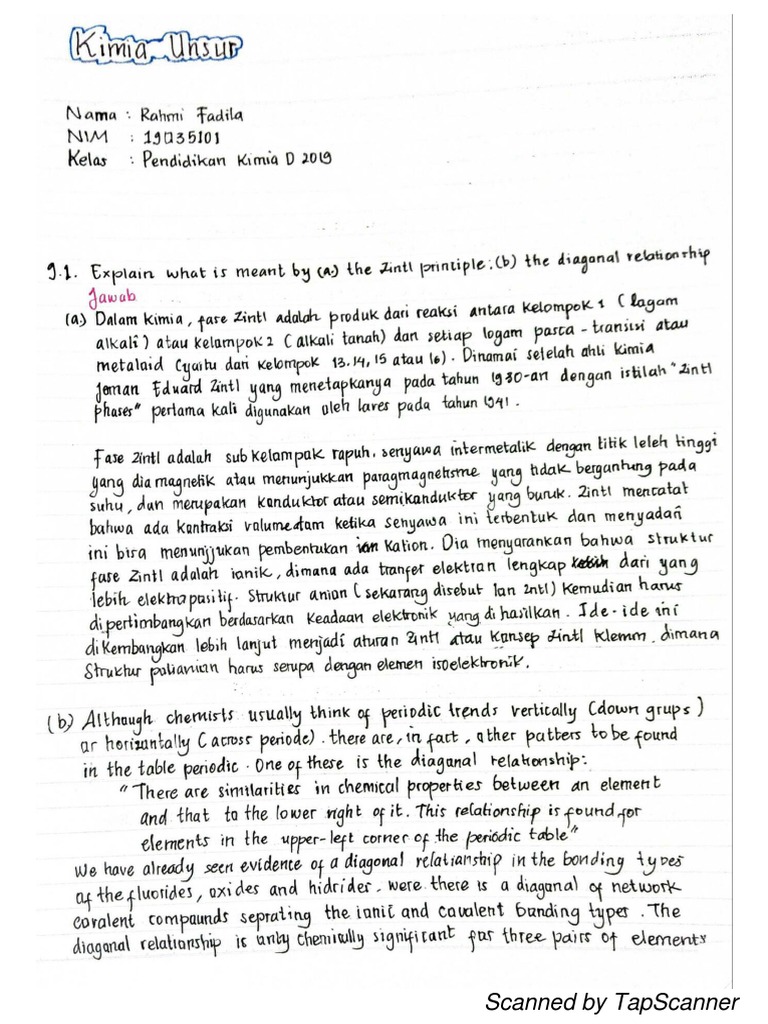 Kimia Unsur
Nama : Rahmi Fadila
NIM : 19035101
Kelas : Pendidikan Kimia D 2019
9.1. Explain what is meant by (a.) the Zintl principle; (b) the diagonal relationship
Jawab
(a.) Dalam kimia, fase Zintl adalah produk dari reaksi antara kelompok 1 (logam
alkali) atau kelompok 2 (alkali tanah) dan setiap logam pasca-transisi atau
metaloid (yaitu dari kelompok 13.14, 15 atau 16). Dinamai selelah ahli kimia
Jerman Eduard Zintl yang menetapkanya pada tahun 1930-an dengan istilah "Zintl
phases" pertama kali digunakan oleh laves pada tahun 1941.
Fase Zintl adalah sub kelompok rapuh, senyawa intermetalik dengan titik leleh tinggi
yang dia magnetik atau menunjukkan paragmagnetisme yang tidak bergantung pada
suhu, dan merupakan konduktor atau semikonduktor yang buruk. Zintl mencatat
bahwa ada kontraksi volume atom ketika senyawa ini terbentuk dan menyadari
ini bisa menunjjukan pembentukan kation. Dia menyarankan bahwa struktur
fase Zintl adalah ionik, dimana ada tranfer elektron lengkap dari yang
lebih elektropositif. Struktur anion (sekarang disebut Ion Zntl) kemudian harus
dipertimbangkan berdasarkan keadaan elektronik yang di hasilkan. Ide-ide ini
dikembangkan lebih lanjut menjadi aturan Zintl atau konsep Zintl Klemm, dimana
Struktur polianion harus serupa dengan elemen isoelektronik.
(b) Although chemists usually think of periodic trends vertically (down grups)
or horizontally (across periode). there are, in fact, other patters to be found
in the table periodic. One of these is the diagonal relationship:
"There are similarities in chemical properties between an element
and that to the lower right of it. This relationship is found for
elements in the upper-left corner of the periodic table"
We have already seen evidence of a diagonal relationship in the bonding types
of the fluorides, oxides and hidrides. were there is a diagonal of network
covalent compounds seprating the ionic and covalent bonding types. The
diagonal relationship is only chemically significant for three pairs of elements
Scanned by TapScanner